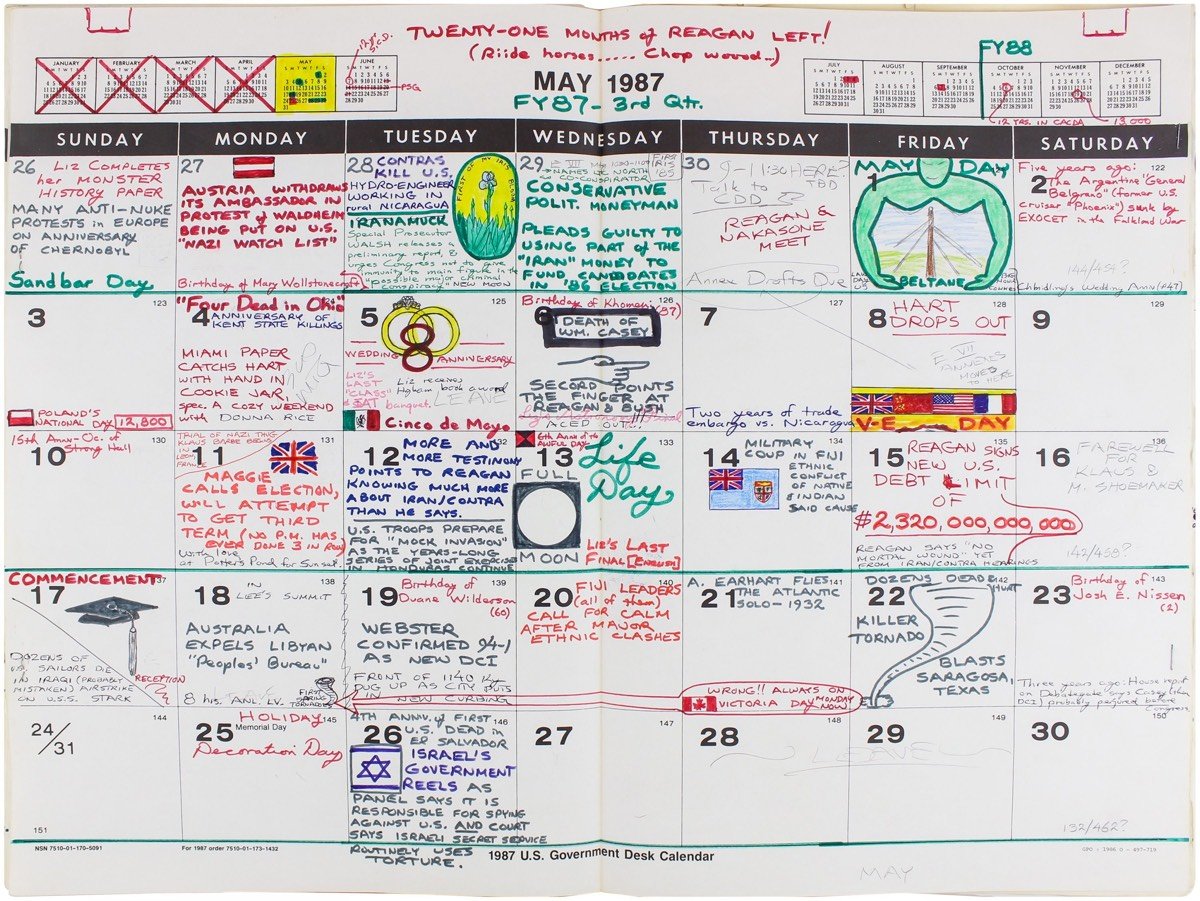 TWENTY-ONE MONTHS of REAGAN LEFT!
(Riide horses..... Chop wood...)
MAY 1987
FY87-3rd Qtr.
JANUARY
FEBRUARY
MARCH
APRIL
MAY
JUNE
PSG
JULY
AUGUST
SEPTEMBER
FY88
OCTOBER
NOVEMBER
DECEMBER
12 YRS. IN CACDA
13,000
SUNDAY
MONDAY
TUESDAY
WEDNESDAY
THURSDAY
FRIDAY
SATURDAY
26
LIZ COMPLETES
her MONSTER
HISTORY PAPER
MANY ANTI-NUKE
PROTESTS in EUROPE
ON ANNIVERSARY
OF CHERNOBYL
Sandbar Day
27
AUSTRIA WITHDRAWS
ITS AMBASSADOR IN
PROTEST of WALDHEIM
BEING PUT ON U.S.
"NAZI WATCH LIST"
Birthday of Mary Wollstonecraft
28
CONTRAS
KILL U.S.
HYDRO-ENGINEER
WORKING IN
rural NICARAGUA
IRANAMUCK
Special Prosecutor
WALSH releases a
preliminary report, &
urges Congress not to give
immunity to main figure in the
"possible major criminal
conspiracy"
NEW MOON
FIRST OF MY IRIS BLOOMS
29
NAMES LTC NORTH
CO-CONSPIRATOR
FIRST
IRIS
'85
CONSERVATIVE
POLIT. MONEYMAN
PLEADS GUILTY TO
USING PART of the
"IRAN" MONEY TO
FUND CANDIDATES
IN '86 ELECTION
30
9-11:30 HERE?
Talk to TBD
REAGAN &
NAKASONE
MEET
Annex Drafts Due
MAY DAY
1
LAW DAY
US
BELTANE
Five years ago: 122
2
The Argentine "General
Belgrano" (former U.S.
cruiser "Phoenix") sunk by
EXOCET in the Falkland War
144/454?
Wedding Anniv (#47)
123
3
POLAND'S
NATIONAL DAY
12,800
"Four Dead in Ohio"
124
4
ANNIVERSARY OF
KENT STATE KILLINGS
MIAMI PAPER
CATCHS HART
WITH HAND IN
COOKIE JAR,
spec. A COZY WEEKEND
with DONNA RICE
125
5
8
WEDDING ANNIVERSARY
LIZ'S
LAST
"CLASS"
Liz receives
Higham book award
banquet.
LEAVE
Cinco de Mayo
Birthday of Khomeni (87)
126
6
DEATH OF
WM. CASEY
SECOND POINTS
THE FINGER AT
REAGAN & BUSH
ACED OUT...
127
7
Two years of trade
embargo vs. Nicaragua
128
8
HART
DROPS OUT
E VII
ANNEXES
MOVED
TO HERE
V-E DAY
129
9
130
10
15th Anniv-Oc. of
Strong Hall
131
TRIAL OF NAZI THUG
KLAUS BARBE BEGINS
IN
LEON,
FRANCE
11
MAGGIE
CALLS ELECTION,
WILL ATTEMPT
TO GET THIRD
TERM (NO P.M. HAS
EVER DONE 3 IN ROW)
With love
at Potter's Pond for Sunset.
12
MORE AND
MORE TESTIMONY
POINTS TO REAGAN
KNOWING MUCH MORE
ABOUT IRAN/CONTRA
THAN HE SAYS.
U.S. TROOPS PREPARE
FOR "MOCK INVASION"
AS THE YEARS-LONG
SERIES OF JOINT EXERCISES
IN HONDURAS CONTINUE
133
6th Anniv of the
AWFUL DAY
13
FULL
MOON
Life
Day
LIZ'S LAST
FINAL [ENGLISH]
134
14
MILITARY
COUP IN FIJI
ETHNIC
CONFLICT
OF NATIVE
& INDIAN
SAID CAUSE
135
15
REAGAN SIGNS
NEW U.S.
DEBT LIMIT
OF
$2,320,000,000,000
REAGAN SAYS "NO
MORTAL WOUND" YET
FROM IRAN/CONTRA HEARINGS
136
16
FAREWELL
FOR
KLAUS &
M. SHOEMAKER
142/458?
COMMENCEMENT
137
17
DOZENS OF
U.S. SAILORS DIE
IN IRAQI (PROBABLY
MISTAKEN) AIRSTRIKE
ON U.S.S. STARK
RECEPTION
138
18
IN
LEE'S SUMMIT
AUSTRALIA
EXPELS LIBYAN
"Peoples' Bureau"
8 hrs. ANL. LV.
FIRST
SPRING
TORNADOS
139
19
Birthday of
Duane Wilderson
(60)
WEBSTER
CONFIRMED 94-1
AS NEW DCI
FRONT OF 1140 KY
DUG UP AS CITY PUTS
IN NEW CURBING
140
20
FIJI LEADERS
(all of them)
CALL FOR CALM
AFTER MAJOR
ETHNIC CLASHES
141
21
A. EARHART FLIES
THE ATLANTIC
SOLO-1932
WRONG!! ALWAYS ON
VICTORIA DAY MONDAY
NOW.
142
22
DOZENS DEAD
HURT
KILLER
TORNADO
BLASTS
SARAGOSA,
TEXAS
143
23
Birthday of
Josh E. Nissen
(2)
Three years ago: House report
on Debategate says Casey (then
DCI) probably perjured before
Congress.
144
24/31
151
145
25
HOLIDAY
Memorial Day
Decoration Day
146
4TH ANNV. of FIRST
26
U.S. DEAD in
El SALVADOR
ISRAEL'S
GOVERNMENT
REELS AS
PANEL SAYS IT IS
RESPONSIBLE FOR SPYING
AGAINST U.S. AND COURT
SAYS ISRAELI SECRET SERVICE
ROUTINELY USES
TORTURE.
147
27
148
28
LEAVE
149
29
150
30
132/462?
NSN 7510-01-170-5091
For 1987 order 7510-01-173-1432
1987 U.S. Government Desk Calendar
GPO : 1986 O - 497-719
MAY